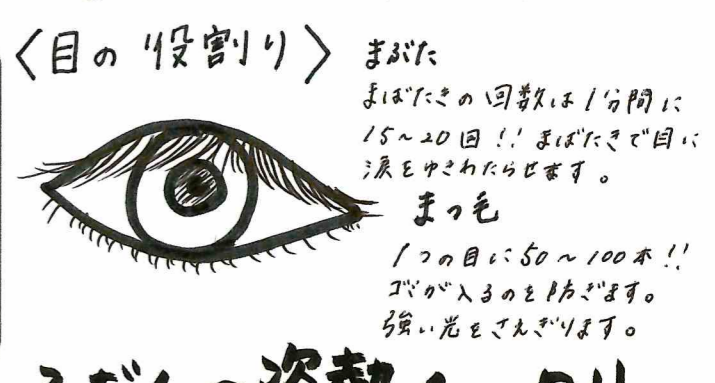 〈目の役割り〉
まぶた
まばたきの回数は1分間に
15~20回!!まばたきで目に
涙をゆきわたらせます。
まつ毛
1つの目に50~100本!!
ゴミが入るのを防ぎます。
強い光をさえぎります。